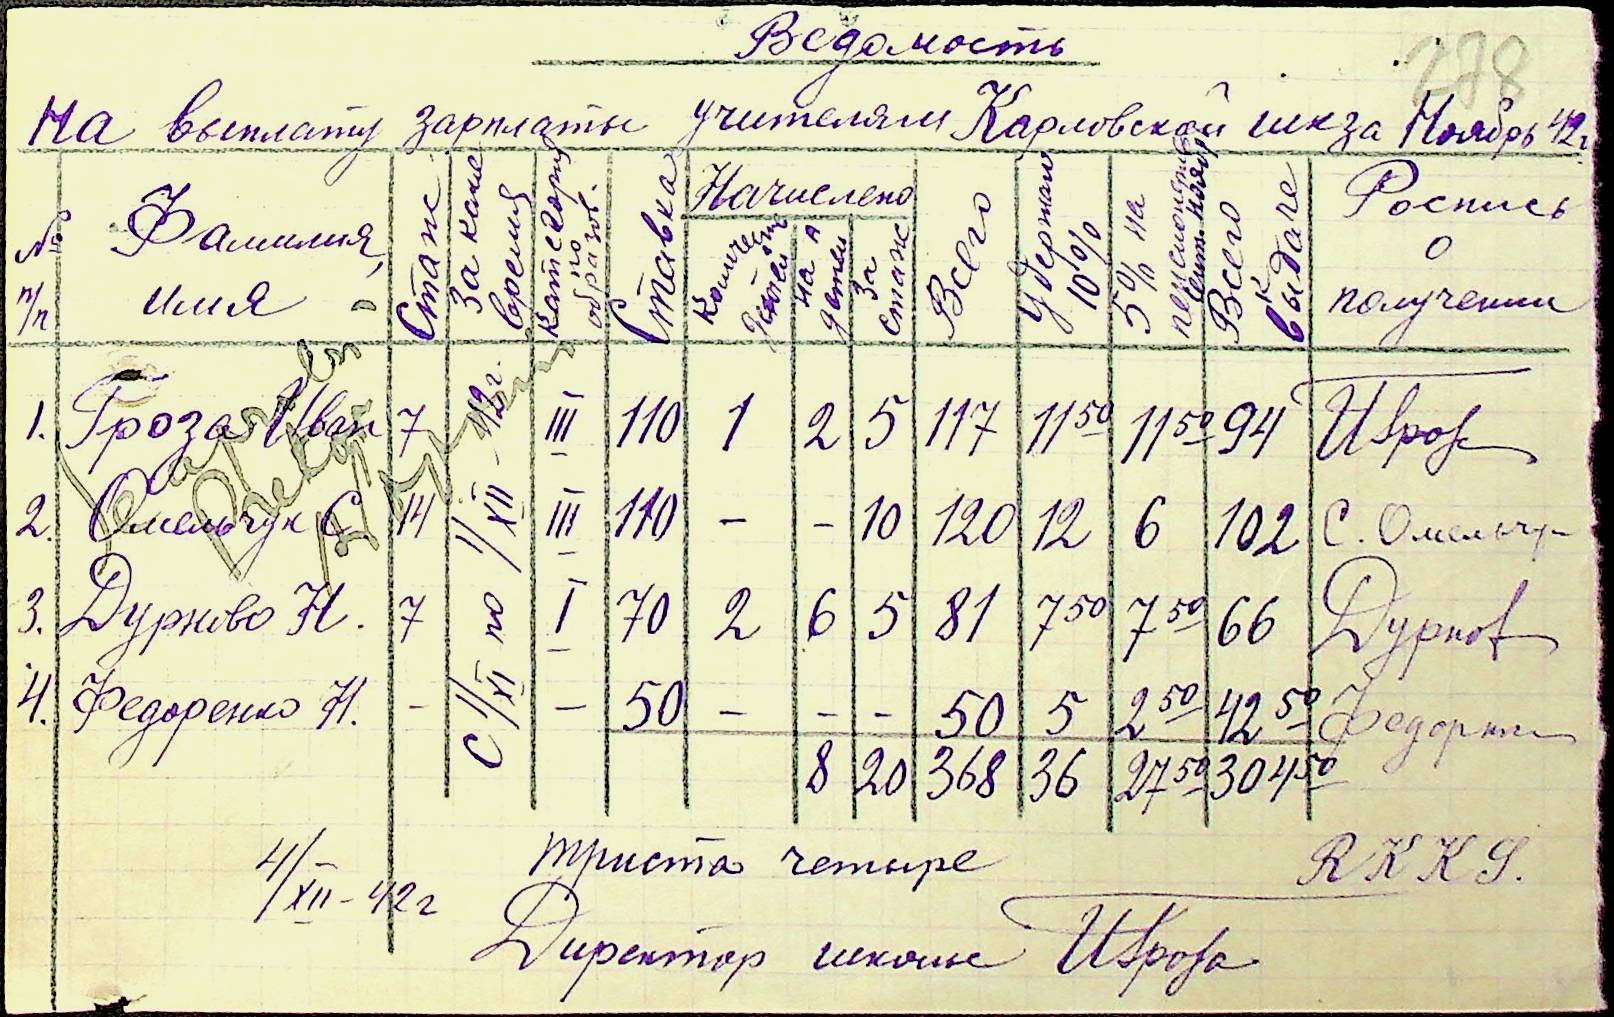 Ведомость
278
На выплату зарплаты учителям Карловской шк за Ноябрь 42 г
№ п/п
Фамилия, имя
Стаж
За какое время
Категория по образов.
Ставка
Начислено
Количе детей
на детей
За стаж
Всего
Удержан 10%
5% на
Всего к выдаче
Роспись о получении
С 1/XI по 1/XII - 42г.
1. Гроза Иван 7 III 110 1 2 5 117 11 50 11 50 94 ИГроза
2. Омельчук С. 14 III 110 - - 10 120 12 6 102 С. Омельчук
3. Дурново Н. 7 I 70 2 6 5 81 7 50 7 50 66 Дурнов
4. Федоренко Н. - - 50 - - - 50 5 2 50 42 50 Федоренко
8 20 368 36 27 50 304 50
триста четыре RKKS.
4/XII - 42 г
Директор школы ИГроза